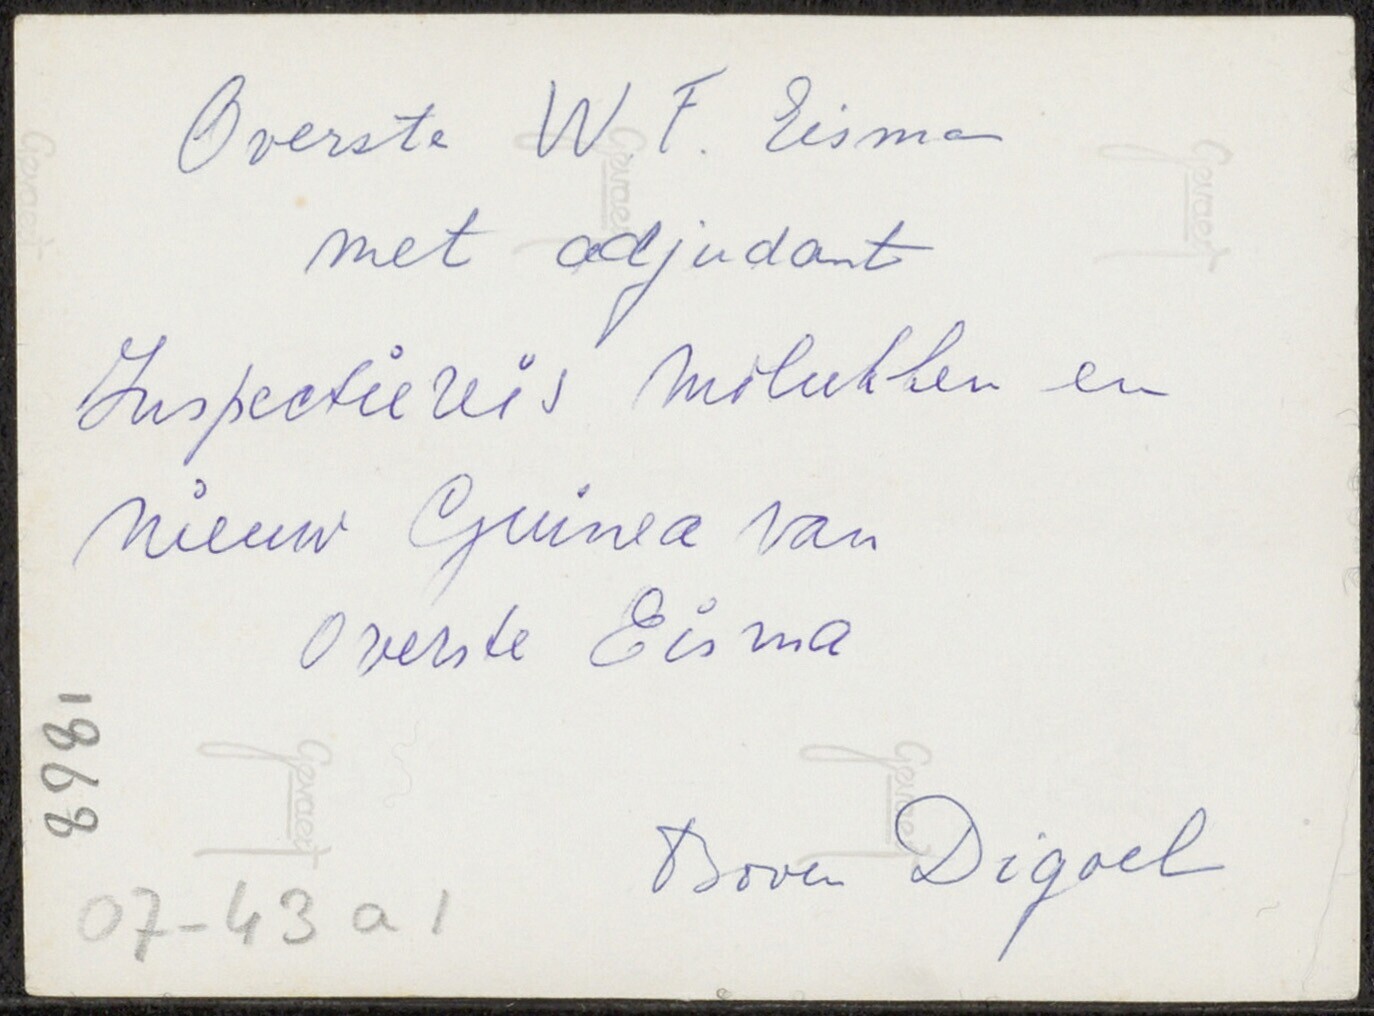 Overste W.F. Eisma
met adjudant
Inspectiereis Molukken en
Nieuw Guinea van
Overste Eisma
Boven Digoel
1868
07-43 a 1
Gevaert
Gevaert
Gevaert
Gevaert
Gevaert